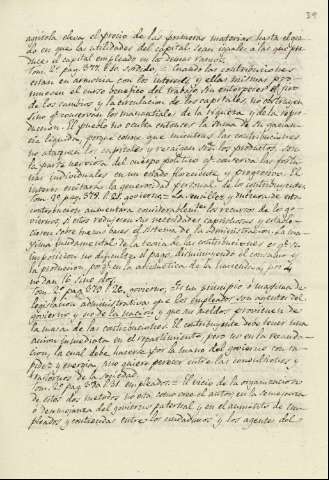 39
agricola eleva el precio de las primeras materias hasta el gra-
do en que las utilidades del capital sean iguales a las que pro-
duce el capital empleado en los demas ramos.
Tom. 2º pag. 377. = Cuando las contribuciones
estan en armonia con los intereses, y ellas mismas pro-
mueven el curso benefico del trabajo sin entorpecer el giro
de los cambios y la circulacion de los capitales, no obstruyen
sino que conservan los manantiales de la riqueza y de la repro-
duccion. El pueblo no cuenta entonces la suma de su ganan-
cia liquida, porque como que mientras las contribuciones
no ataquen los capitales y recaigan son los productos, son
la parte nerviosa del cuerpo politico que conserva las fortu-
nas individuales en un estado floreciente y progresivo. El
interes excitará la generosidad personal de los contribuyentes.
Tom. 2º pag. 378. l. 21. govierno = La sencillez y dulzura de esta
contribucion aumentara considerablemente los recursos de los go-
viernos, si estos reducen sus necesidades caprichosas y establ-
cieren sobre nuevas bases el sistema de la administracion. La ma-
xima fundamental de la teoria de las contribuciones es que su
imposicion no dificulte el pago, disminuyendo el consumo y
la produccion, porque en la aritmetica de la hacienda, 2 por 4
no dan 16 sino dos.
Tom. 2º pag. 379. l. 26. govierno, = Es un principio o maxima de
legislacion administrativa que los empleados son agentes del
govierno y no de la nacion y que su poder proviene de
la masa de las contribuciones. El contribuyente debe tener una
accion inmediata en el repartimiento, pero no en la recauda-
cion, la cual debe hacerse por la mano del govierno con ra-
pidez y energia, sino quiere perecer entre las convulsiones y
trastornos de la sociedad.
Tom. 2º pag. 380. l. 31. empleados = El vicio de la organizacion
de estos dos metodos no esta como cree el autor, en la semejanza
o desemejanza del govierno paternal y en el aumento de em-
pleados y contienda entre los ciudadanos y los agentes del